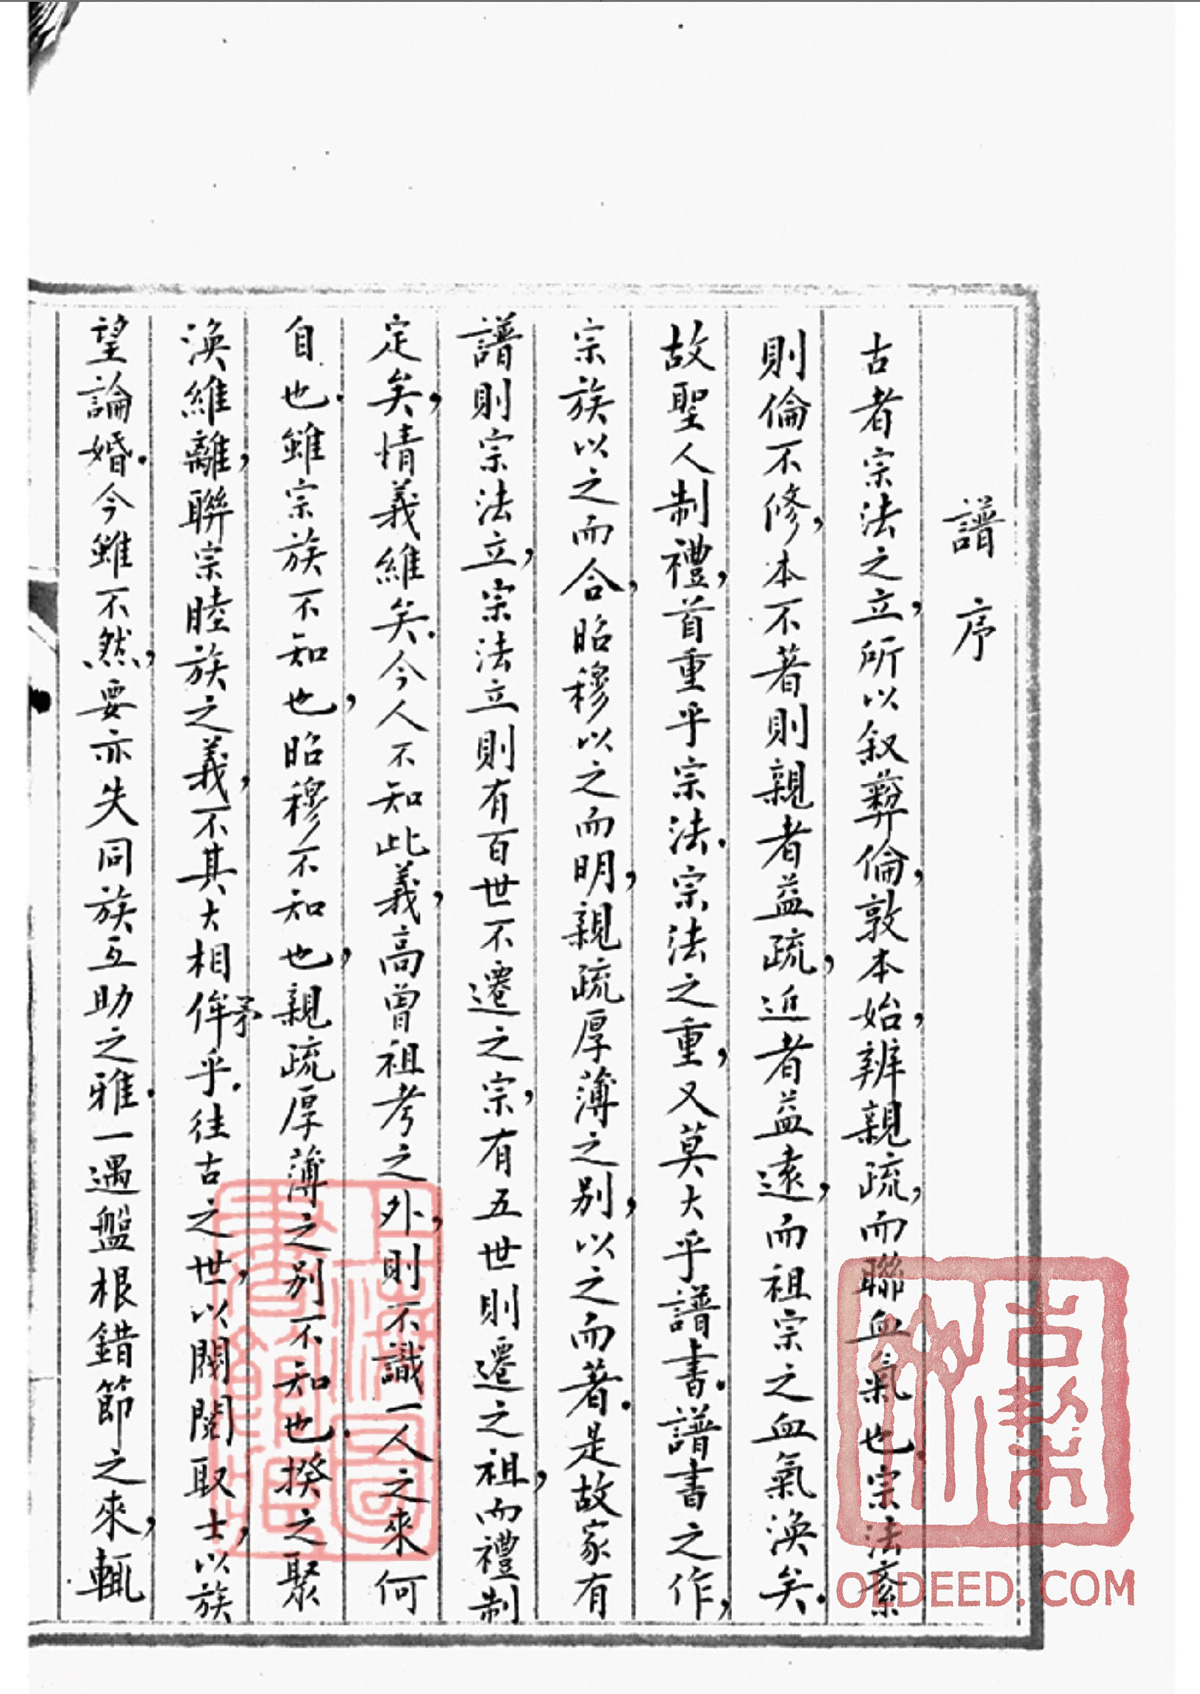 譜序
古者宗法之立，所以叙彝倫，敦本始，辨親疏，而聯血氣也．宗法紊
則倫不修，本不著則親者益疏，近者益遠，而祖宗之血氣渙矣．
故聖人制禮，首重乎宗法．宗法之重，又莫大乎譜書．譜書之作，
宗族以之而合，昭穆以之而明，親疏厚薄之別，以之而著．是故家有
譜則宗法立，宗法立則有百世不遷之宗，有五世則遷之祖，而禮制
定矣，情義維矣．今人不知此義，高曾祖考之外，則不識一人之來何
自也．雖宗族不知也，昭穆不知也，親疏厚薄之別不知也．揆之聚
渙維離，聯宗睦族之義，不其大相侔矛乎．往古之世，以閥閱取士，以族
望論婚．今雖不然，要亦失同族互助之雅．一遇盤根錯節之來，輒
上海圖書館藏
古籍
OLDEED.COM